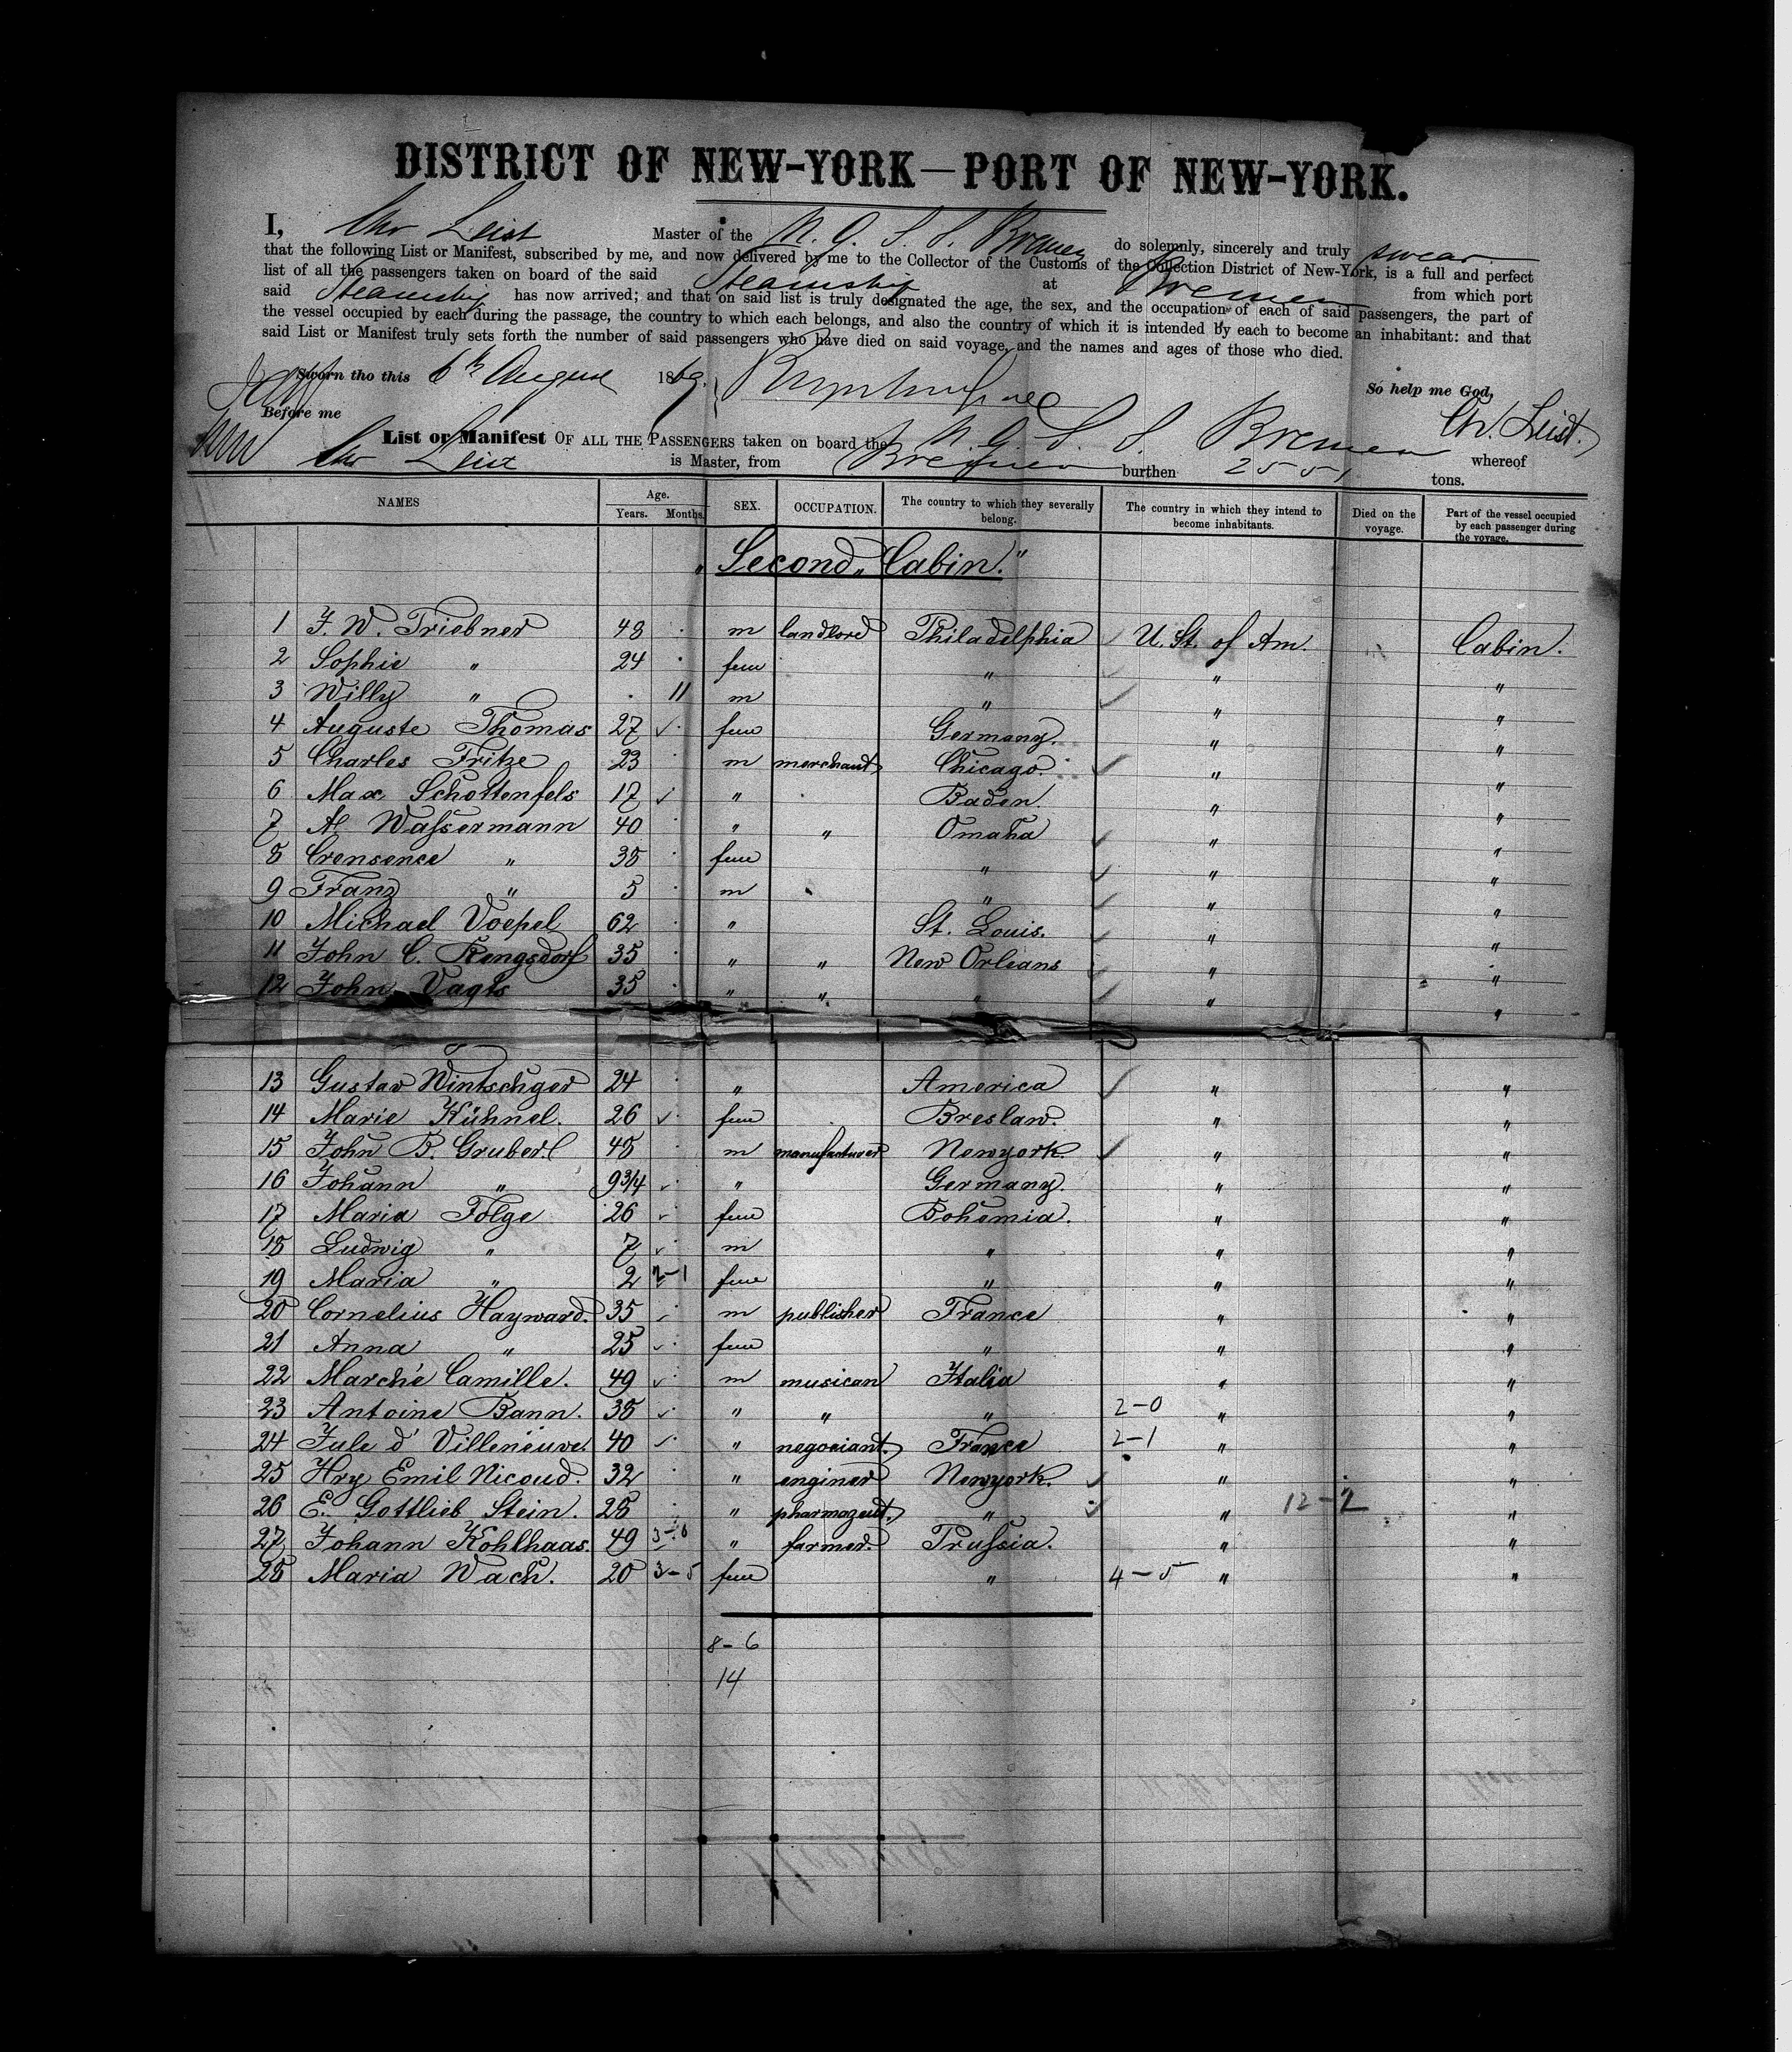 DISTRICT OF NEW-YORK—PORT OF NEW-YORK.
I, Chr Leist Master of the N. G. S. S. Bremen do solemnly, sincerely and truly swear
that the following List or Manifest, subscribed by me, and now delivered by me to the Collector of the Customs of the Collection District of New-York, is a full and perfect
list of all the passengers taken on board of the said Steamship at Bremen from which port
said Steamship has now arrived; and that on said list is truly designated the age, the sex, and the occupation of each of said passengers, the part of
the vessel occupied by each during the passage, the country to which each belongs, and also the country of which it is intended by each to become an inhabitant: and that
said List or Manifest truly sets forth the number of said passengers who have died on said voyage, and the names and ages of those who died.
Sworn tho this 6th August 1869. So help me God,
Before me Ch. Leist.
List or Manifest OF ALL THE PASSENGERS taken on board the N. G. S. S. Bremen whereof
Chr Leist is Master, from Bremen burthen 2551 tons.
NAMES Age. Years. Months. SEX. OCCUPATION. The country to which they severally belong. The country in which they intend to become inhabitants. Died on the voyage. Part of the vessel occupied by each passenger during the voyage.
"Second Cabin."
1 F. W. Triebner 48 m landlord Philadelphia U. St. of Am. Cabin.
2 Sophie " 24 fem " " "
3 Willy " 11 m " " "
4 Auguste Thomas 27 fem Germany. " "
5 Charles Fritze 23 m merchant Chicago. " "
6 Max Schottenfels 17 " Baden. " "
7 A Waſsermann 40 " " Omaha " "
8 Crensence " 38 fem " " "
9 Franz " 5 m " " "
10 Michael Voepel 62 " St. Louis. " "
11 John C. Rengsdorf 35 " " New Orleans " "
12 John Vagts 35 " " " " "
13 Gustav Wintschger 24 " America " "
14 Marie Kühnel. 26 fem Breslau. " "
15 John B. Gruberl 48 m manufacturer Newyork. " "
16 Johann " 9 3/4 " Germany. " "
17 Maria Folge 26 fem Bohemia. " "
18 Ludwig " 7 m " " "
19 Maria " 2 2-1 fem " " "
20 Cornelius Hayward. 35 m publisher France " "
21 Anna " 25 fem " " "
22 Marché Camille. 49 m musican Italia " "
23 Antoine Bann. 38 " " " 2-0 " "
24 Jule d' Villeneuve. 40 " negociant. France 2-1 " "
25 Hry Emil Nicoud. 32 " enginer Newyork. " "
26 E. Gottlieb Stein. 28 " pharmazeut. " " 12-2 "
27 Johann Kohlhaas. 49 " farmer. Pruſsia. " "
28 Maria Wach. 20 3-5 fem " 4-5 " "
8-6
14